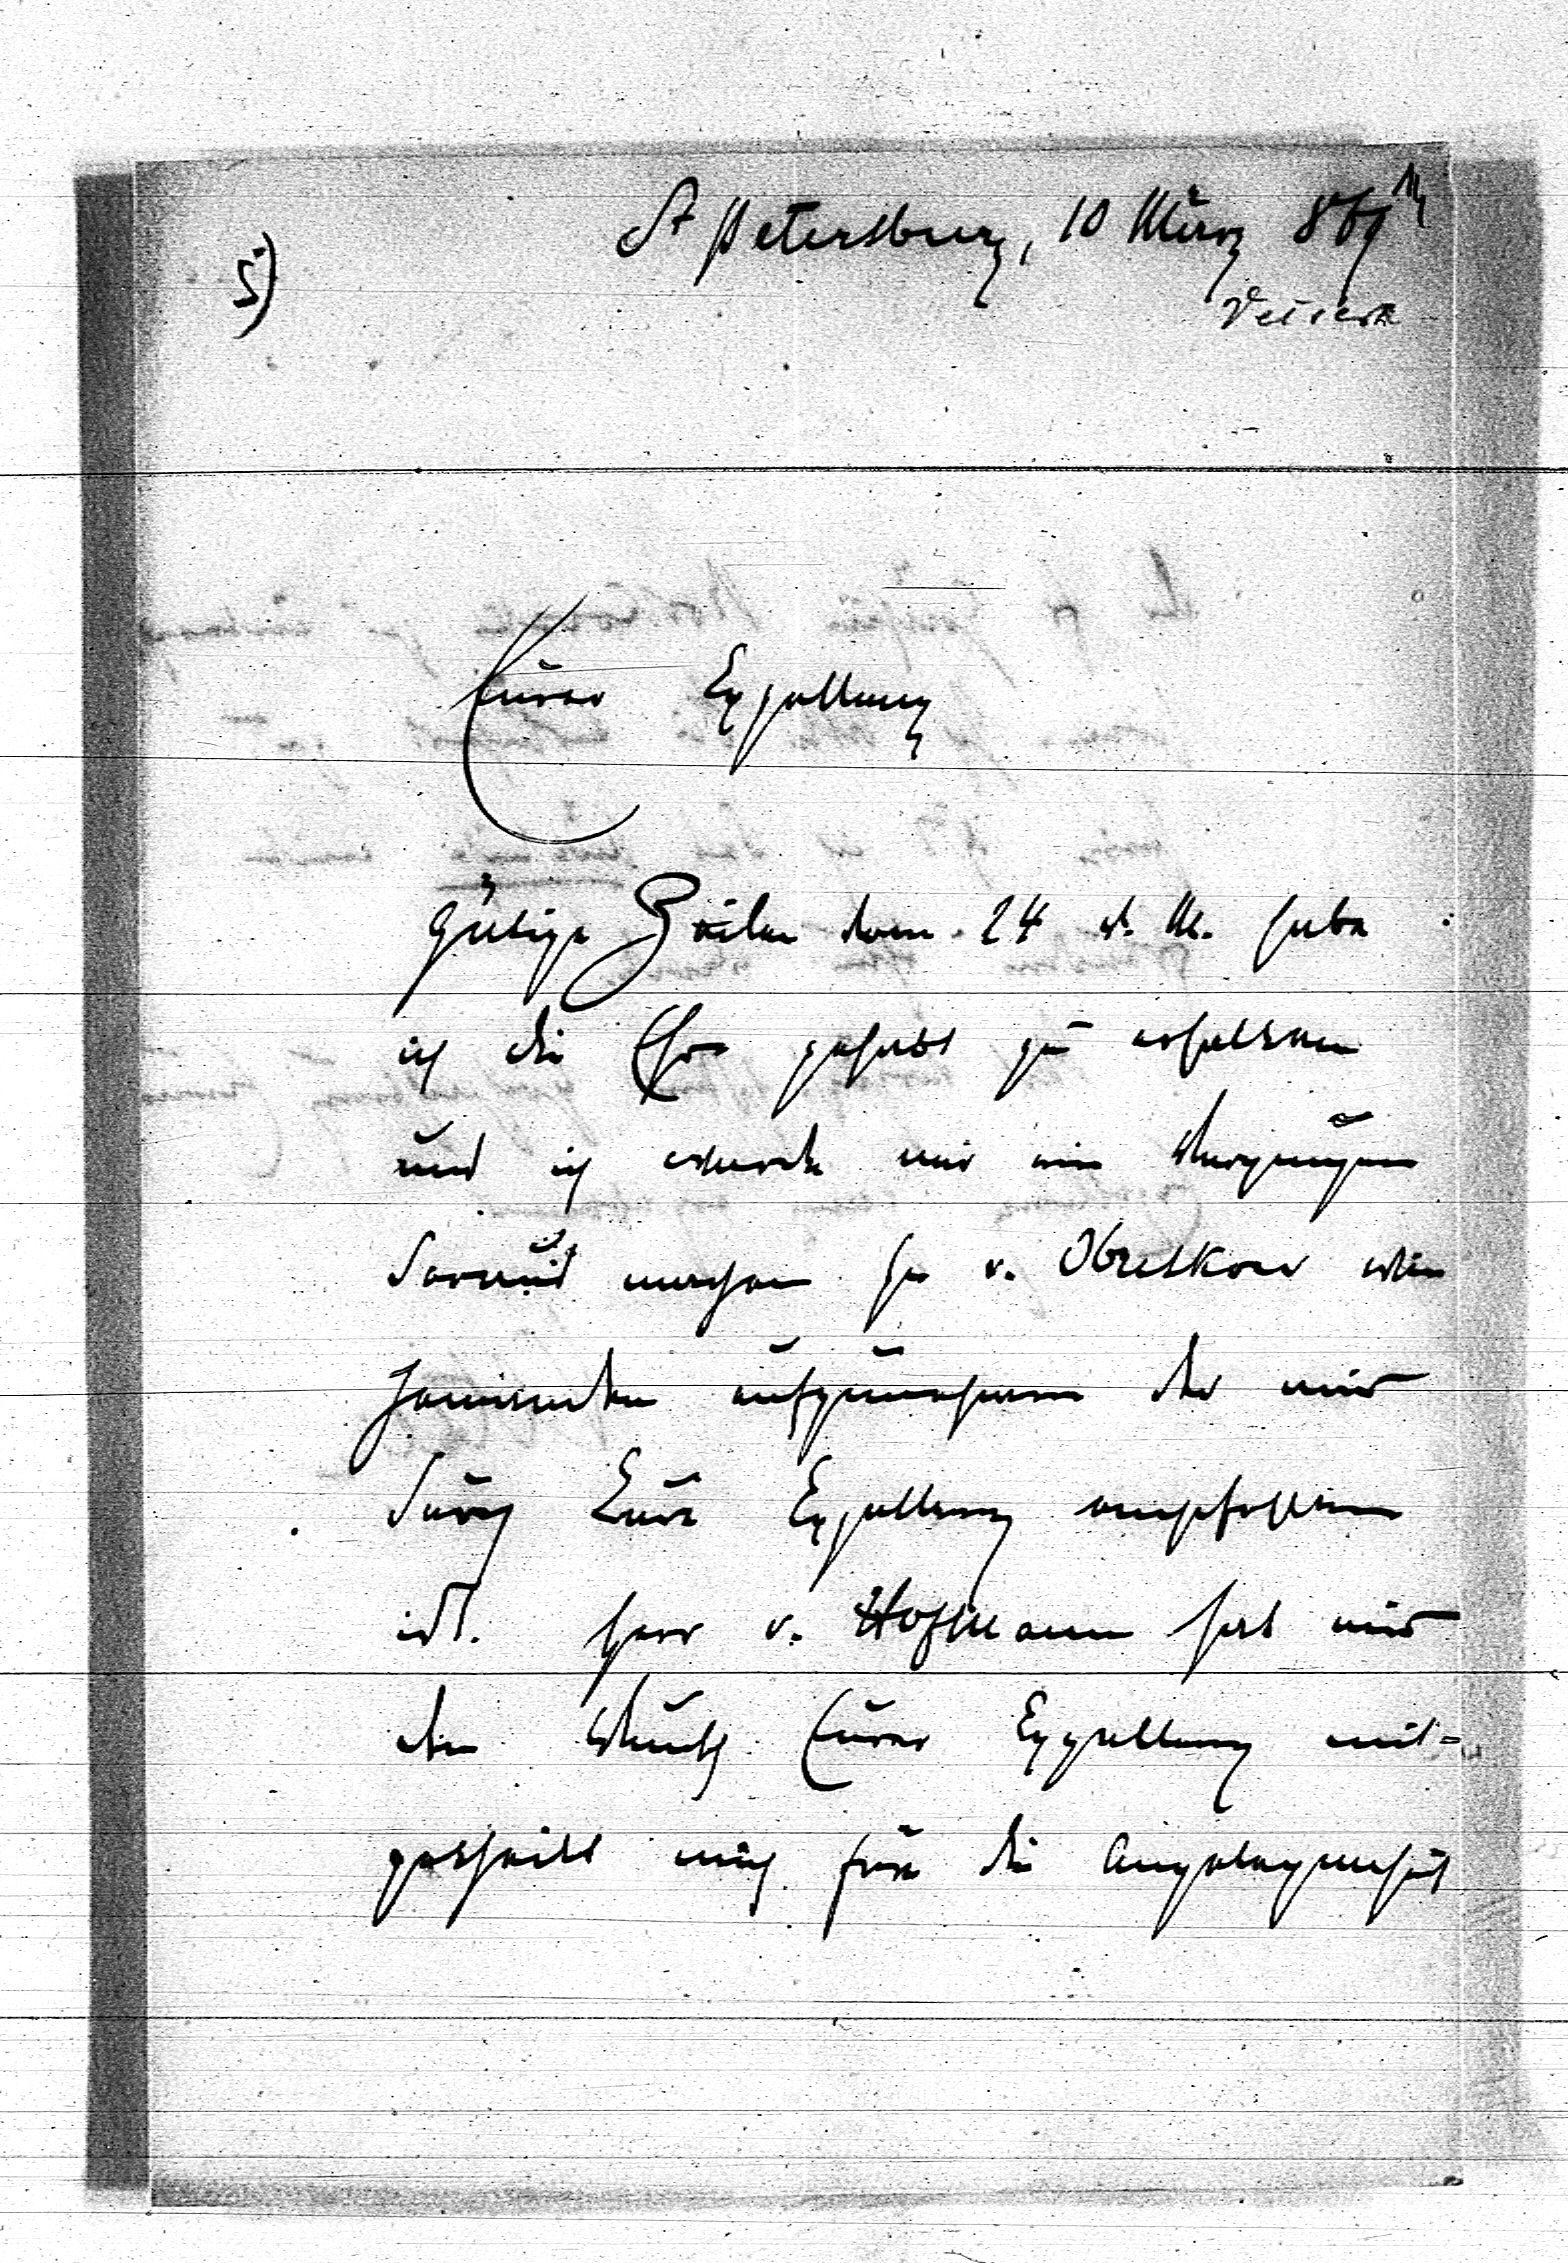 5)
St Petersburg, 10 März 869
Eurer Exzellenz
gütige Zeilen vom 24 v. M. habe
ich die Ehre gehabt zu erhalten
und ich werde mir ein Vergnügen
daraus machen Hr v. Obreskow den
Jemanden aufzunehmen der mir
durch Eure Exzellenz empfohlen
ist. Herr v. Hofmann hat mir
den Wunsch Eurer Exzellenz mit=
getheilt mich für die Angelegenheit